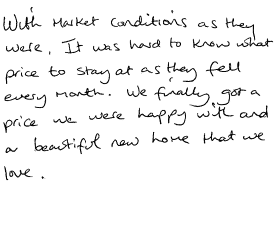 With Market conditions as they
were, It was hard to know what
price to stay at as they fell
every month. We finally got a
price we were happy with and
a beautiful new home that we
love.